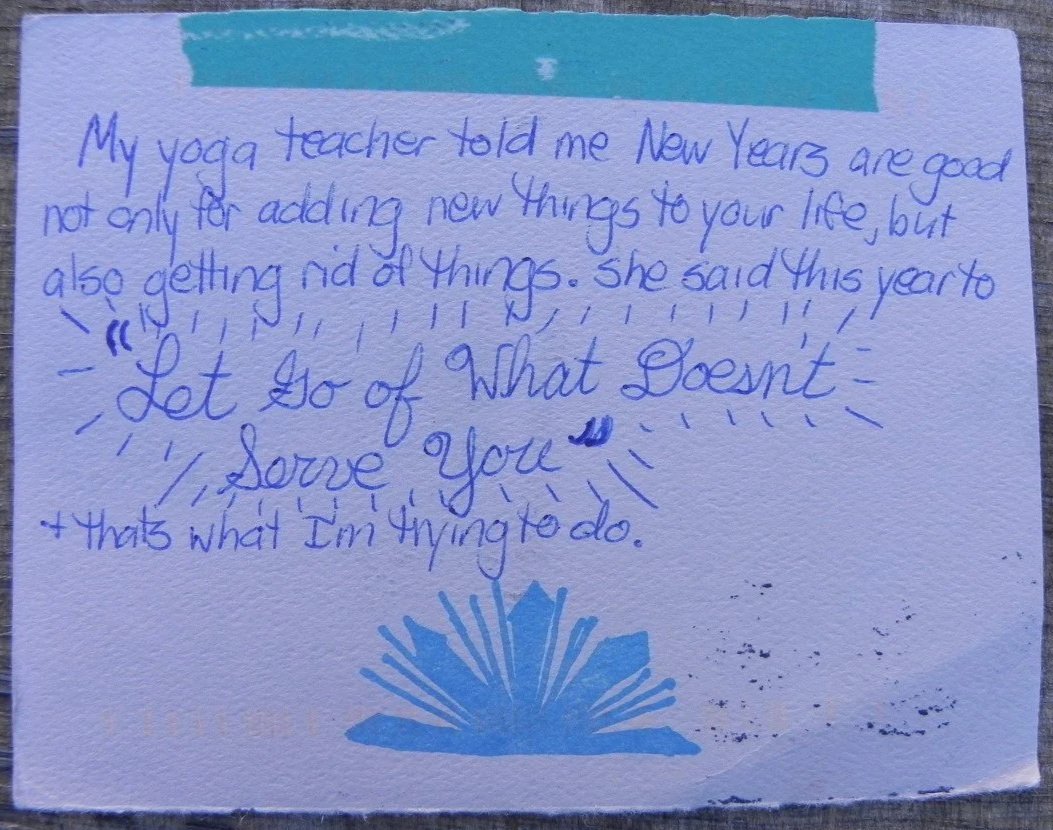 My yoga teacher told me New Years are good
not only for adding new things to your life, but
also getting rid of things. She said this year to
"Let Go of What Doesn't
Serve You"
+ thats what I'm trying to do.